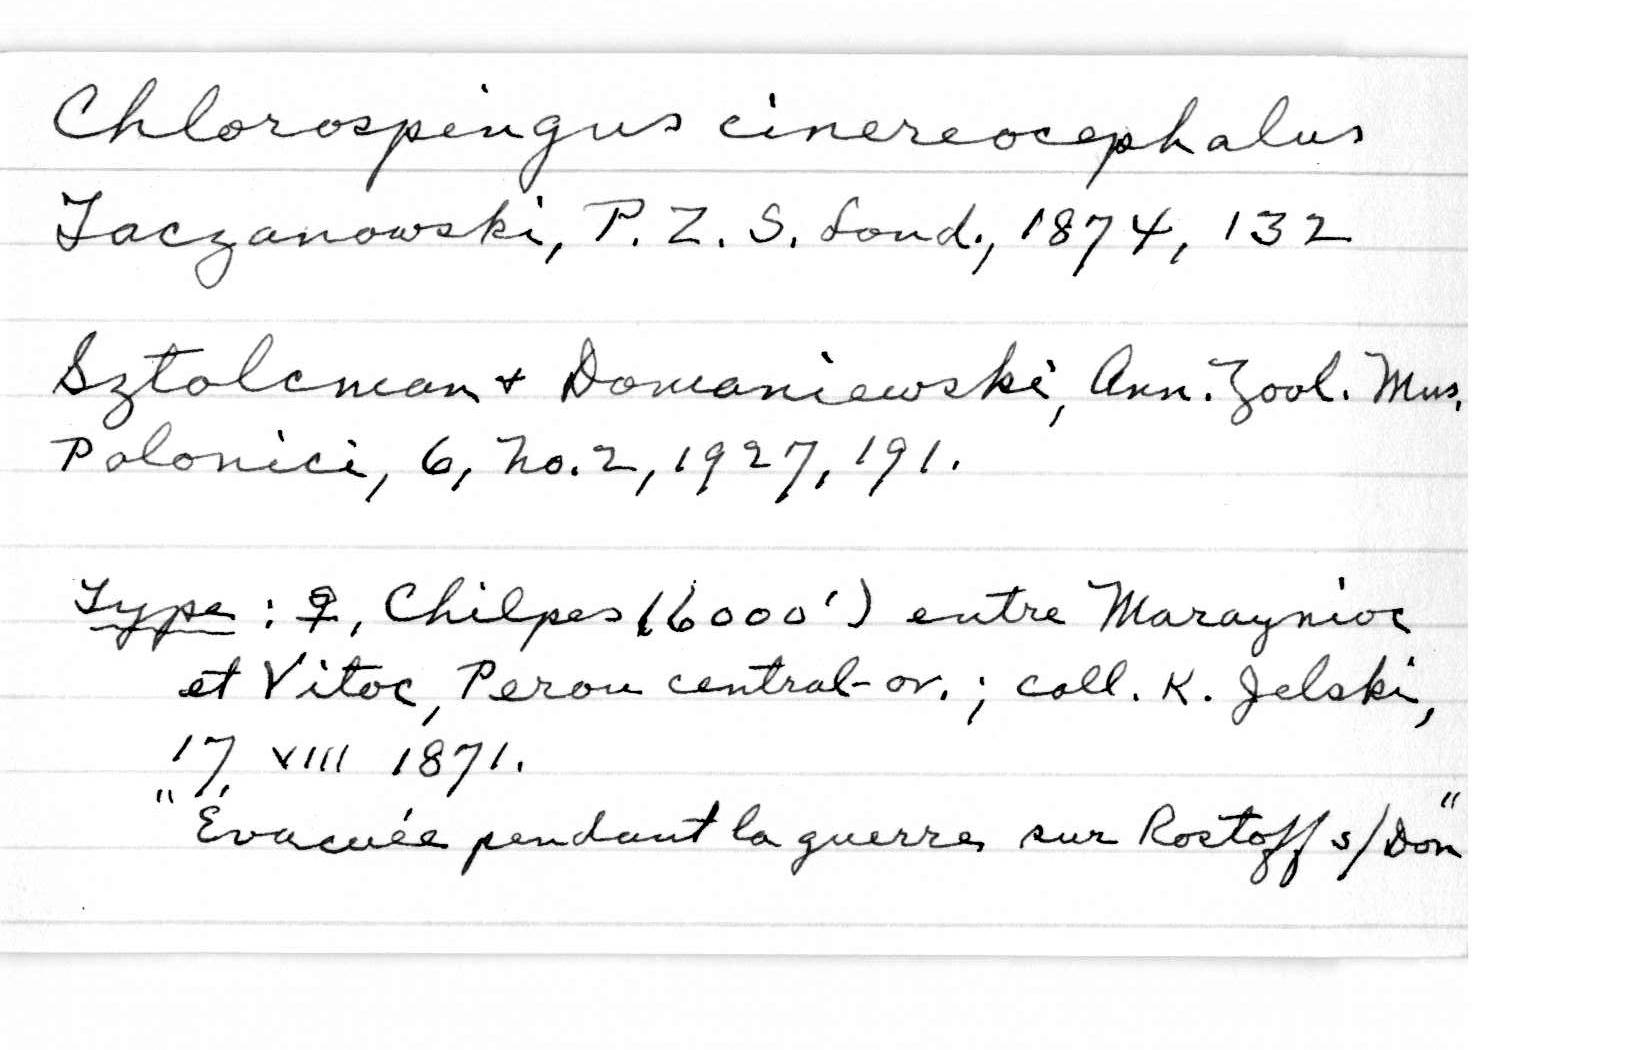 Chlorospingus cinereocephalus
Taczanowski, P. Z. S. Lond., 1874, 132
Sztolcman + Domaniewski, Ann. Zool. Mus.
Polonici, 6, No. 2, 1927, 191.
Type : ♀, Chilpes (6000') entre Maraynioc
et Vitoc, Perou central-or. ; coll. K. Jelski,
17, VIII 1871.
"Évacuée pendant la guerre sur Rostoff s/Don"